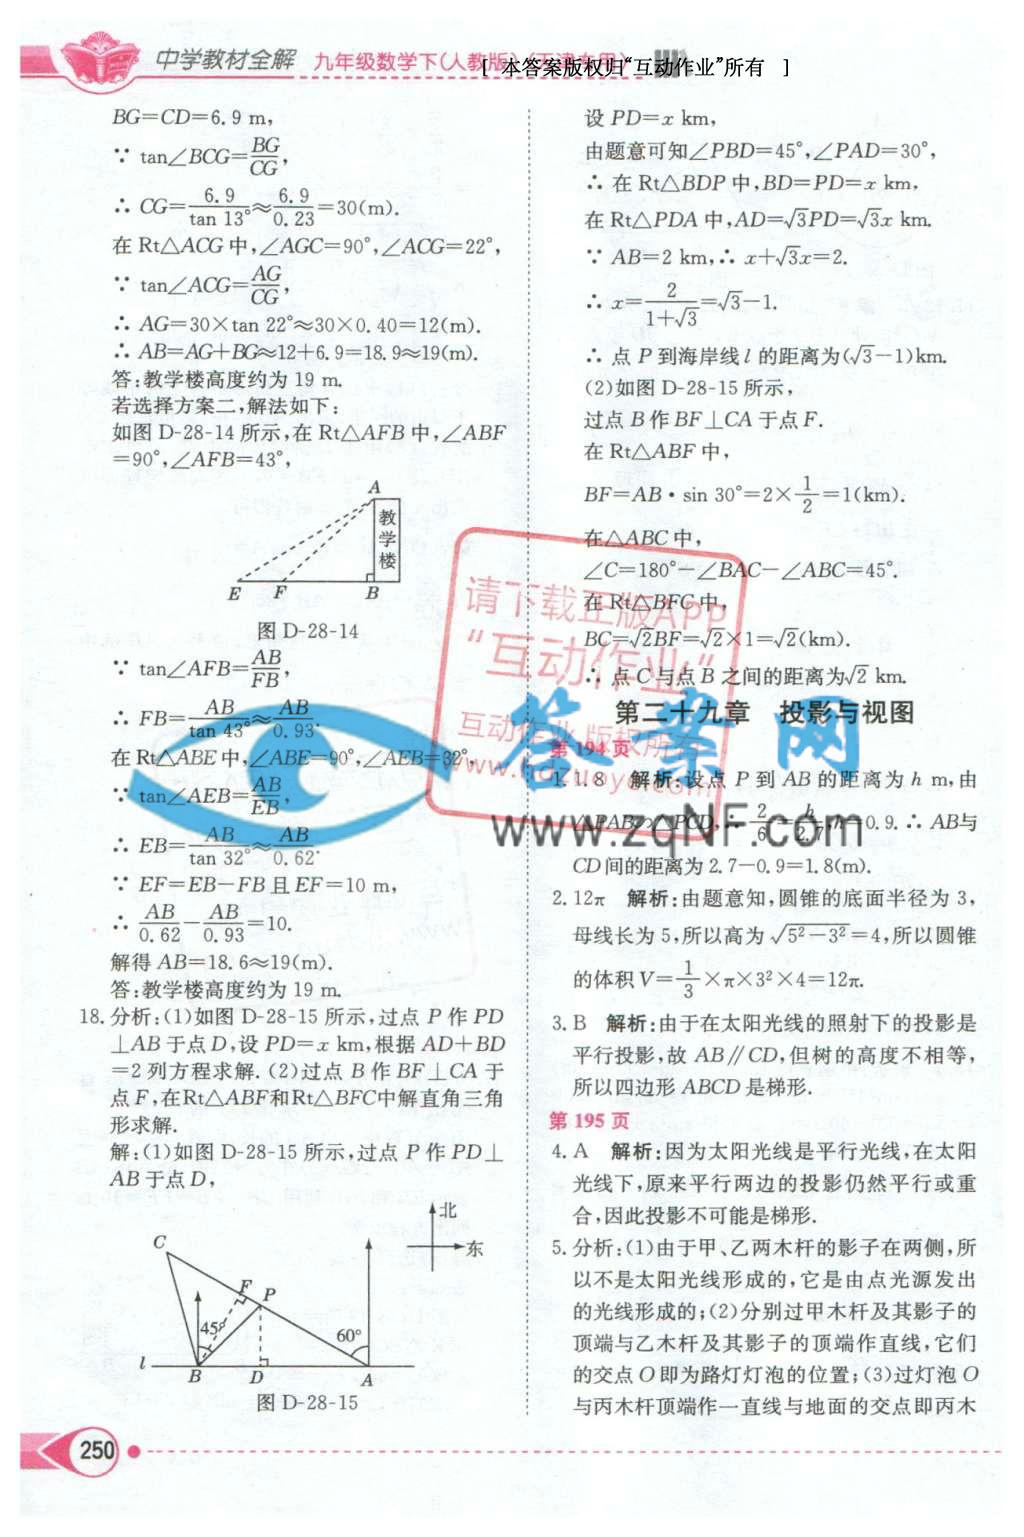 中学教材全解 九年级数学下(人教版)(天津专用)
[ 本答案版权归“互动作业”所有 ]
BG=CD=6.9 m,
∵ tan∠BCG=BG/CG,
∴ CG=6.9/tan 13°≈6.9/0.23=30(m).
在 Rt△ACG 中,∠AGC=90°,∠ACG=22°,
∵ tan∠ACG=AG/CG,
∴ AG=30×tan 22°≈30×0.40=12(m).
∴ AB=AG+BG≈12+6.9=18.9≈19(m).
答:教学楼高度约为 19 m.
若选择方案二,解法如下:
如图 D-28-14 所示,在 Rt△AFB 中,∠ABF
=90°,∠AFB=43°,
A
教学楼
E F B
图 D-28-14
∵ tan∠AFB=AB/FB,
∴ FB=AB/tan 43°≈AB/0.93.
在 Rt△ABE 中,∠ABE=90°,∠AEB=32°,
∵ tan∠AEB=AB/EB,
∴ EB=AB/tan 32°≈AB/0.62.
∵ EF=EB-FB 且 EF=10 m,
∴ AB/0.62-AB/0.93=10.
解得 AB=18.6≈19(m).
答:教学楼高度约为 19 m.
18. 分析:(1)如图 D-28-15 所示,过点 P 作 PD
⊥AB 于点 D,设 PD=x km,根据 AD+BD
=2 列方程求解.(2)过点 B 作 BF⊥CA 于
点 F,在Rt△ABF和Rt△BFC中解直角三角
形求解.
解:(1)如图 D-28-15 所示,过点 P 作 PD⊥
AB 于点 D,
北
东
C
F P
45° 60°
l
B D A
图 D-28-15
250
设 PD=x km,
由题意可知∠PBD=45°,∠PAD=30°,
∴ 在 Rt△BDP 中,BD=PD=x km,
在 Rt△PDA 中,AD=√3PD=√3x km.
∵ AB=2 km,∴ x+√3x=2.
∴ x=2/(1+√3)=√3-1.
∴ 点 P 到海岸线 l 的距离为(√3-1)km.
(2)如图 D-28-15 所示,
过点 B 作 BF⊥CA 于点 F.
在 Rt△ABF 中,
BF=AB·sin 30°=2×1/2=1(km).
在△ABC 中,
∠C=180°-∠BAC-∠ABC=45°.
在 Rt△BFC 中,
BC=√2BF=√2×1=√2(km).
∴ 点 C 与点 B 之间的距离为√2 km.
第二十九章 投影与视图
第 194 页
1. 1.8 解析:设点 P 到 AB 的距离为 h m,由
△PAB∽△PCD,∴ 2/6=h/2.7,h=0.9. ∴ AB与
CD间的距离为 2.7-0.9=1.8(m).
2. 12π 解析:由题意知,圆锥的底面半径为 3,
母线长为 5,所以高为 √(5²-3²)=4,所以圆锥
的体积 V=1/3×π×3²×4=12π.
3. B 解析:由于在太阳光线的照射下的投影是
平行投影,故 AB∥CD,但树的高度不相等,
所以四边形 ABCD 是梯形.
第 195 页
4. A 解析:因为太阳光线是平行光线,在太阳
光线下,原来平行两边的投影仍然平行或重
合,因此投影不可能是梯形.
5. 分析:(1)由于甲、乙两木杆的影子在两侧,所
以不是太阳光线形成的,它是由点光源发出
的光线形成的;(2)分别过甲木杆及其影子的
顶端与乙木杆及其影子的顶端作直线,它们
的交点 O 即为路灯灯泡的位置;(3)过灯泡 O
与丙木杆顶端作一直线与地面的交点即丙木
请下载正版APP
“互动作业”
互动作业 版权所有
www.hdzuoye.com
答案网
www.zqNF.com